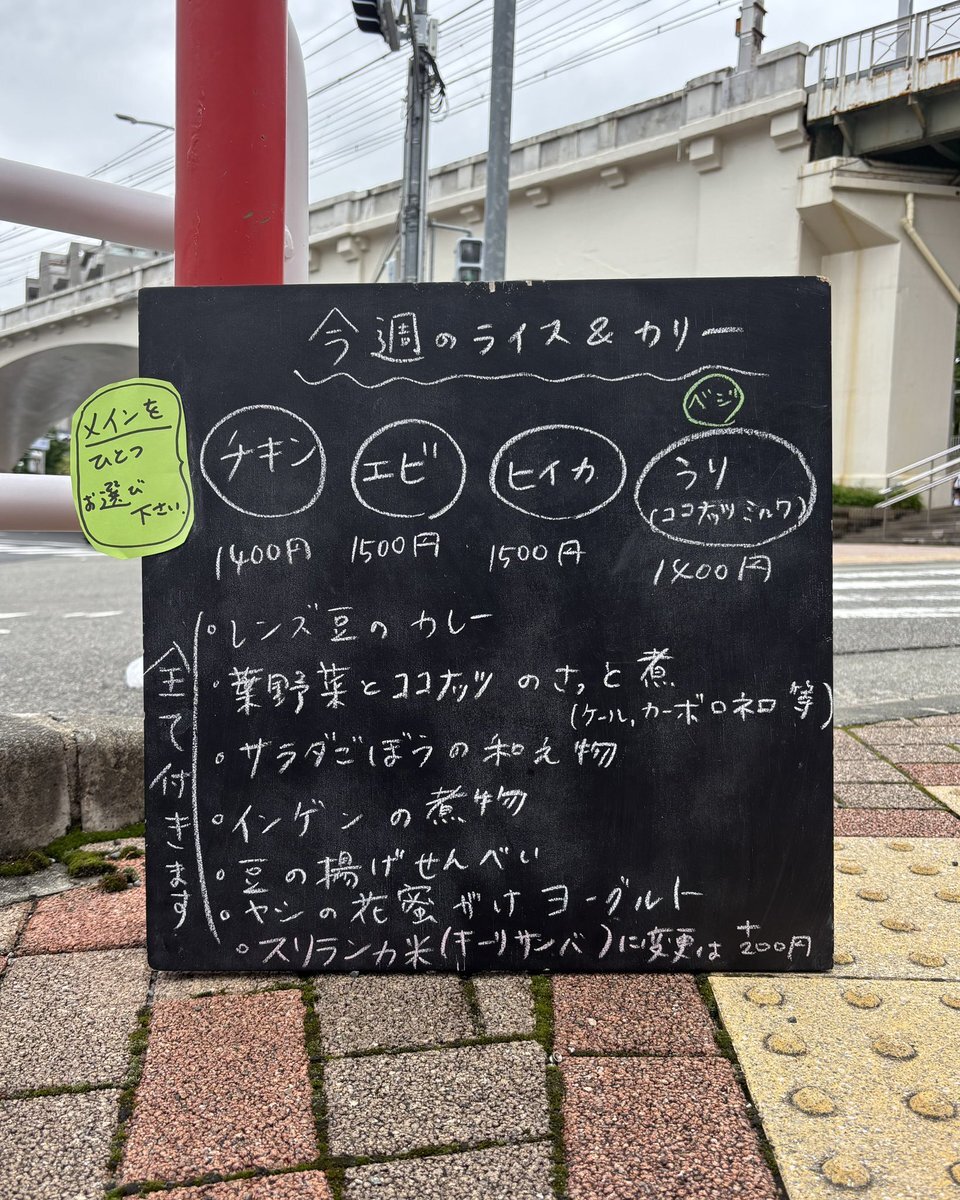 今週のライス&カリー
メインを
ひとつ
お選び
下さい。
チキン
1400円
エビ
1500円
ヒイカ
1500円
ベジ
うり
(ココナッツミルク)
1400円
全て付きます
・レンズ豆のカレー
・葉野菜とココナッツのさっと煮
(ケール,カーボロネロ等)
・サラダごぼうの和え物
・インゲンの煮物
・豆の揚げせんべい
・ヤシの花蜜がけヨーグルト
・スリランカ米(キーリサンバ)に変更は+200円